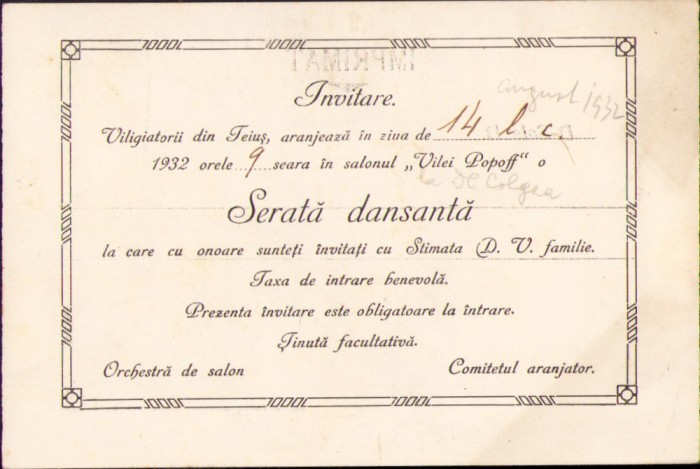 IMPRIMAT
Invitare.
august 1932
Viligiatorii din Teiuș, aranjează în ziua de 14 l. c.
1932 orele 9 seara în salonul „Vilei Popoff“ o
la
Serată dansantă
la care cu onoare sunteți învitați cu Stimata D. V. familie.
Taxa de intrare benevolă.
Prezenta învitare este obligatoare la întrare.
Ținută facultativă.
Orchestră de salon
Comitetul aranjator.